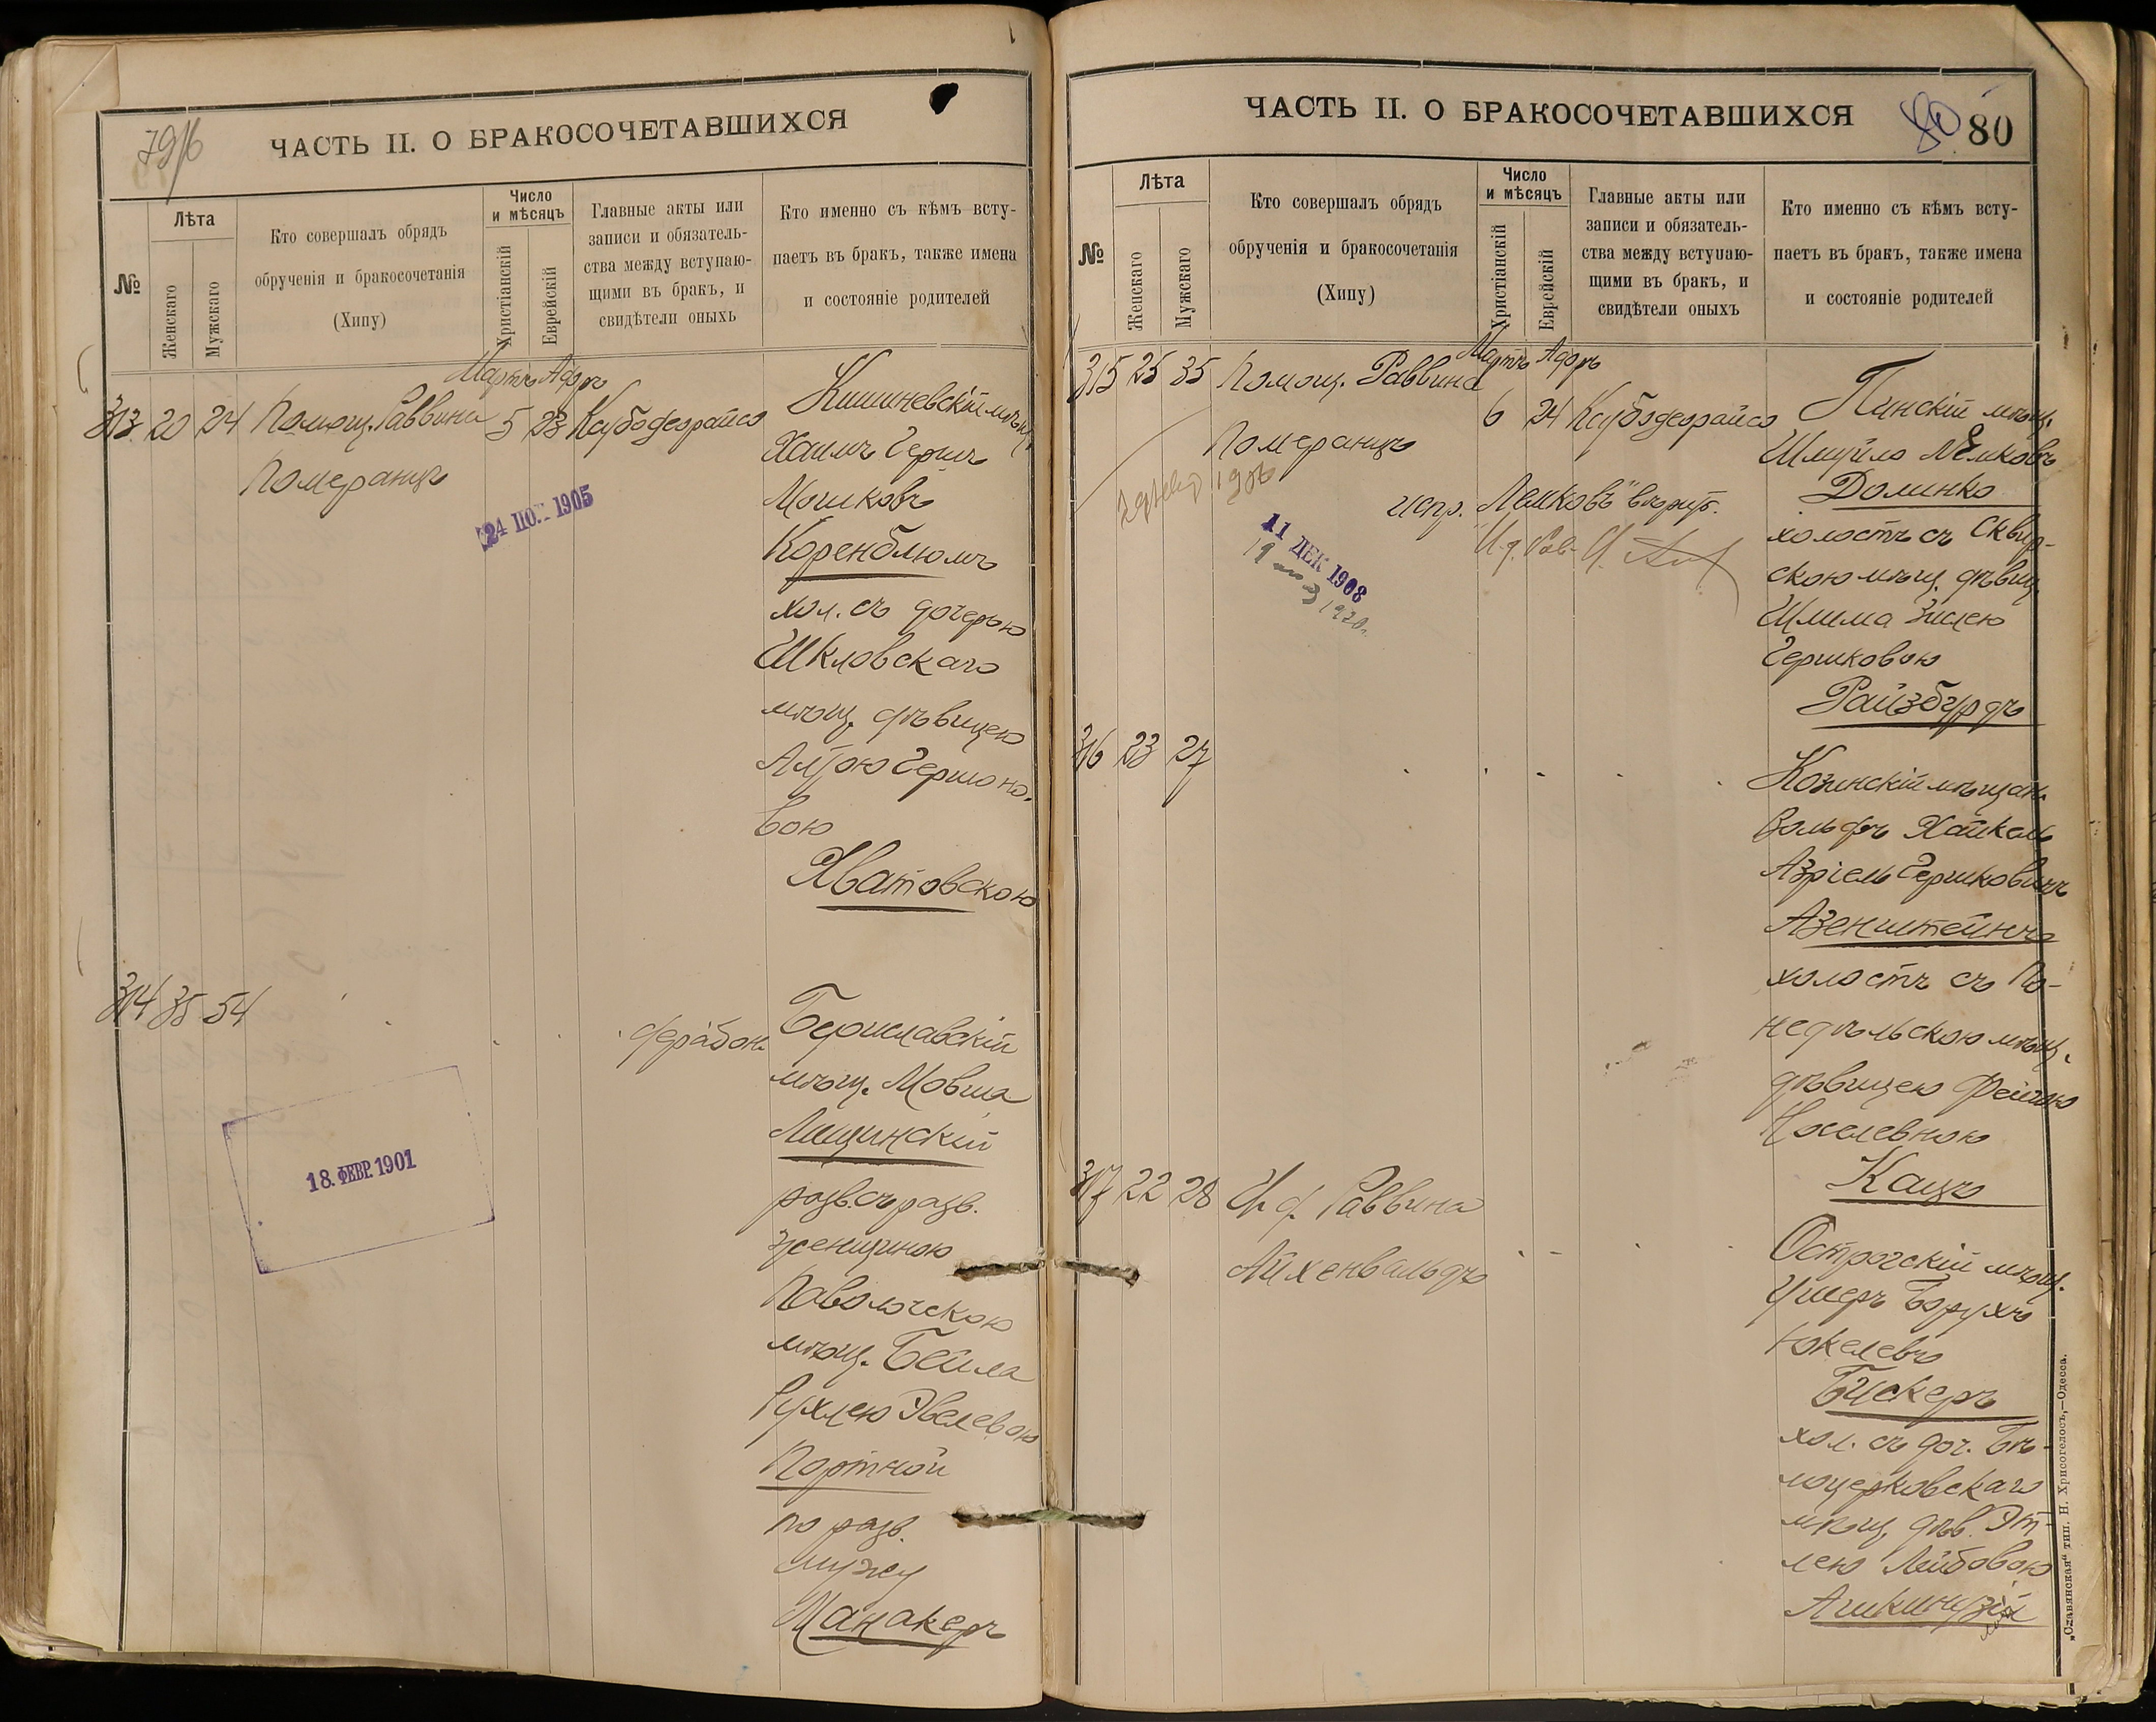 79/б
ЧАСТЬ II. О БРАКОСОЧЕТАВШИХСЯ
№
Лѣта
Женскаго
Мужскаго
Кто совершалъ обрядъ
обрученія и бракосочетанія
(Хипу)
Число
и мѣсяцъ
Христіанскій
Еврейскій
Главные акты или
записи и обязатель-
ства между вступаю-
щими въ бракъ, и
свидѣтели оныхъ
Кто именно съ кѣмъ всту-
паетъ въ бракъ, также имена
и состояніе родителей
Мартъ Адаръ
313 20 24 Помощ. Раввина 5 23 Кисубодеорайсо
Померанцъ
24 1905
Кишиневскій мѣщ.
Хаимъ Гершъ
Мошковъ
Коренблюмъ
хол. съ дочерью
Шкловскаго
мѣщ. дѣвицею
Гершоно-
вою
Хватовскою
314 35 54
дерабон.
Бериславскій
мѣщ. Мовша
Лещинскій
разв. съ разв.
женщиною
Паволочскою
мѣщ. Бейла
Рухлею Эвелевою
Портной
по разв.
мужу
Манакеръ
18. ФЕВР. 1901
ЧАСТЬ II. О БРАКОСОЧЕТАВШИХСЯ
80
80
№
Лѣта
Женскаго
Мужскаго
Кто совершалъ обрядъ
обрученія и бракосочетанія
(Хипу)
Число
и мѣсяцъ
Христіанскій
Еврейскій
Главные акты или
записи и обязатель-
ства между вступаю-
щими въ бракъ, и
свидѣтели оныхъ
Кто именно съ кѣмъ всту-
паетъ въ бракъ, также имена
и состояніе родителей
Мартъ Адаръ
315 25 35 Помощ. Раввина
6 24 Кисубодеорайсо
Померанцъ
испр. "Лемковъ" вѣрить.
И. д. Рав.
11 ДЕК 1908
19 1920
Пинскій мѣщ.
Шмуйло Лемковъ
Долинко
холостъ съ Сквир-
скою мѣщ. дѣвиц.
Шлима Зислею
Гершковою
Райзбурдъ
316 23 27
Козинскій мѣщан.
Вольфъ Хайкель
Азріель Гершковичъ
Азенштейнъ
холостъ съ По-
недѣльскою мѣщ.
дѣвицею Фейгою
Іоселевною
Кацъ
317 22 28 И. д. Раввина
Айхенвальдъ
Острогскій мѣщ.
Ушеръ Борухъ
Юкелевъ
Бискеръ
хол. съ доч. Бѣ-
лоцерковскаго
мѣщ. дѣв. Эт-
лею Лейбовою
„Славянская“ тип. Н. Хрисогелосъ,—Одесса.